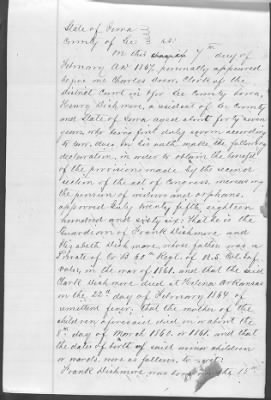 State of Iowa
County of Lee } ss.
On this 7th day of
February A.D. 1867, personally appeared
before me Charles Doerr, Clerk of the
district Court in & for Lee County Iowa,
Henry Dickmore, a resident of Lee County
and State of Iowa aged about forty seven
years, who being first duly sworn according
to law, does on his oath make the following
declaration, in order to obtain the benefit
of the provisions made by the second
section of the act of Congress increasing
the pension of widows and orphans,
approved July twenty fifth eighteen
hundred and sixty six: That he is the
Guardian of Frank Dickmore and
Elizabeth Dickmore, whose father was a
Private of Co B 60th Regt. of U.S. Col. Inf.
Vols, in the war of 1861, and that the said
Clark Dickmore died at Helena Arkansas
on the 22d day of February 1864 of
remittent fever. That the mother of the
children aforesaid died on or about the
8th day of March 1861, and that
the dates of birth of said minor children
or wards, were as follows, to wit:
Frank Dickmore was born on the 15th